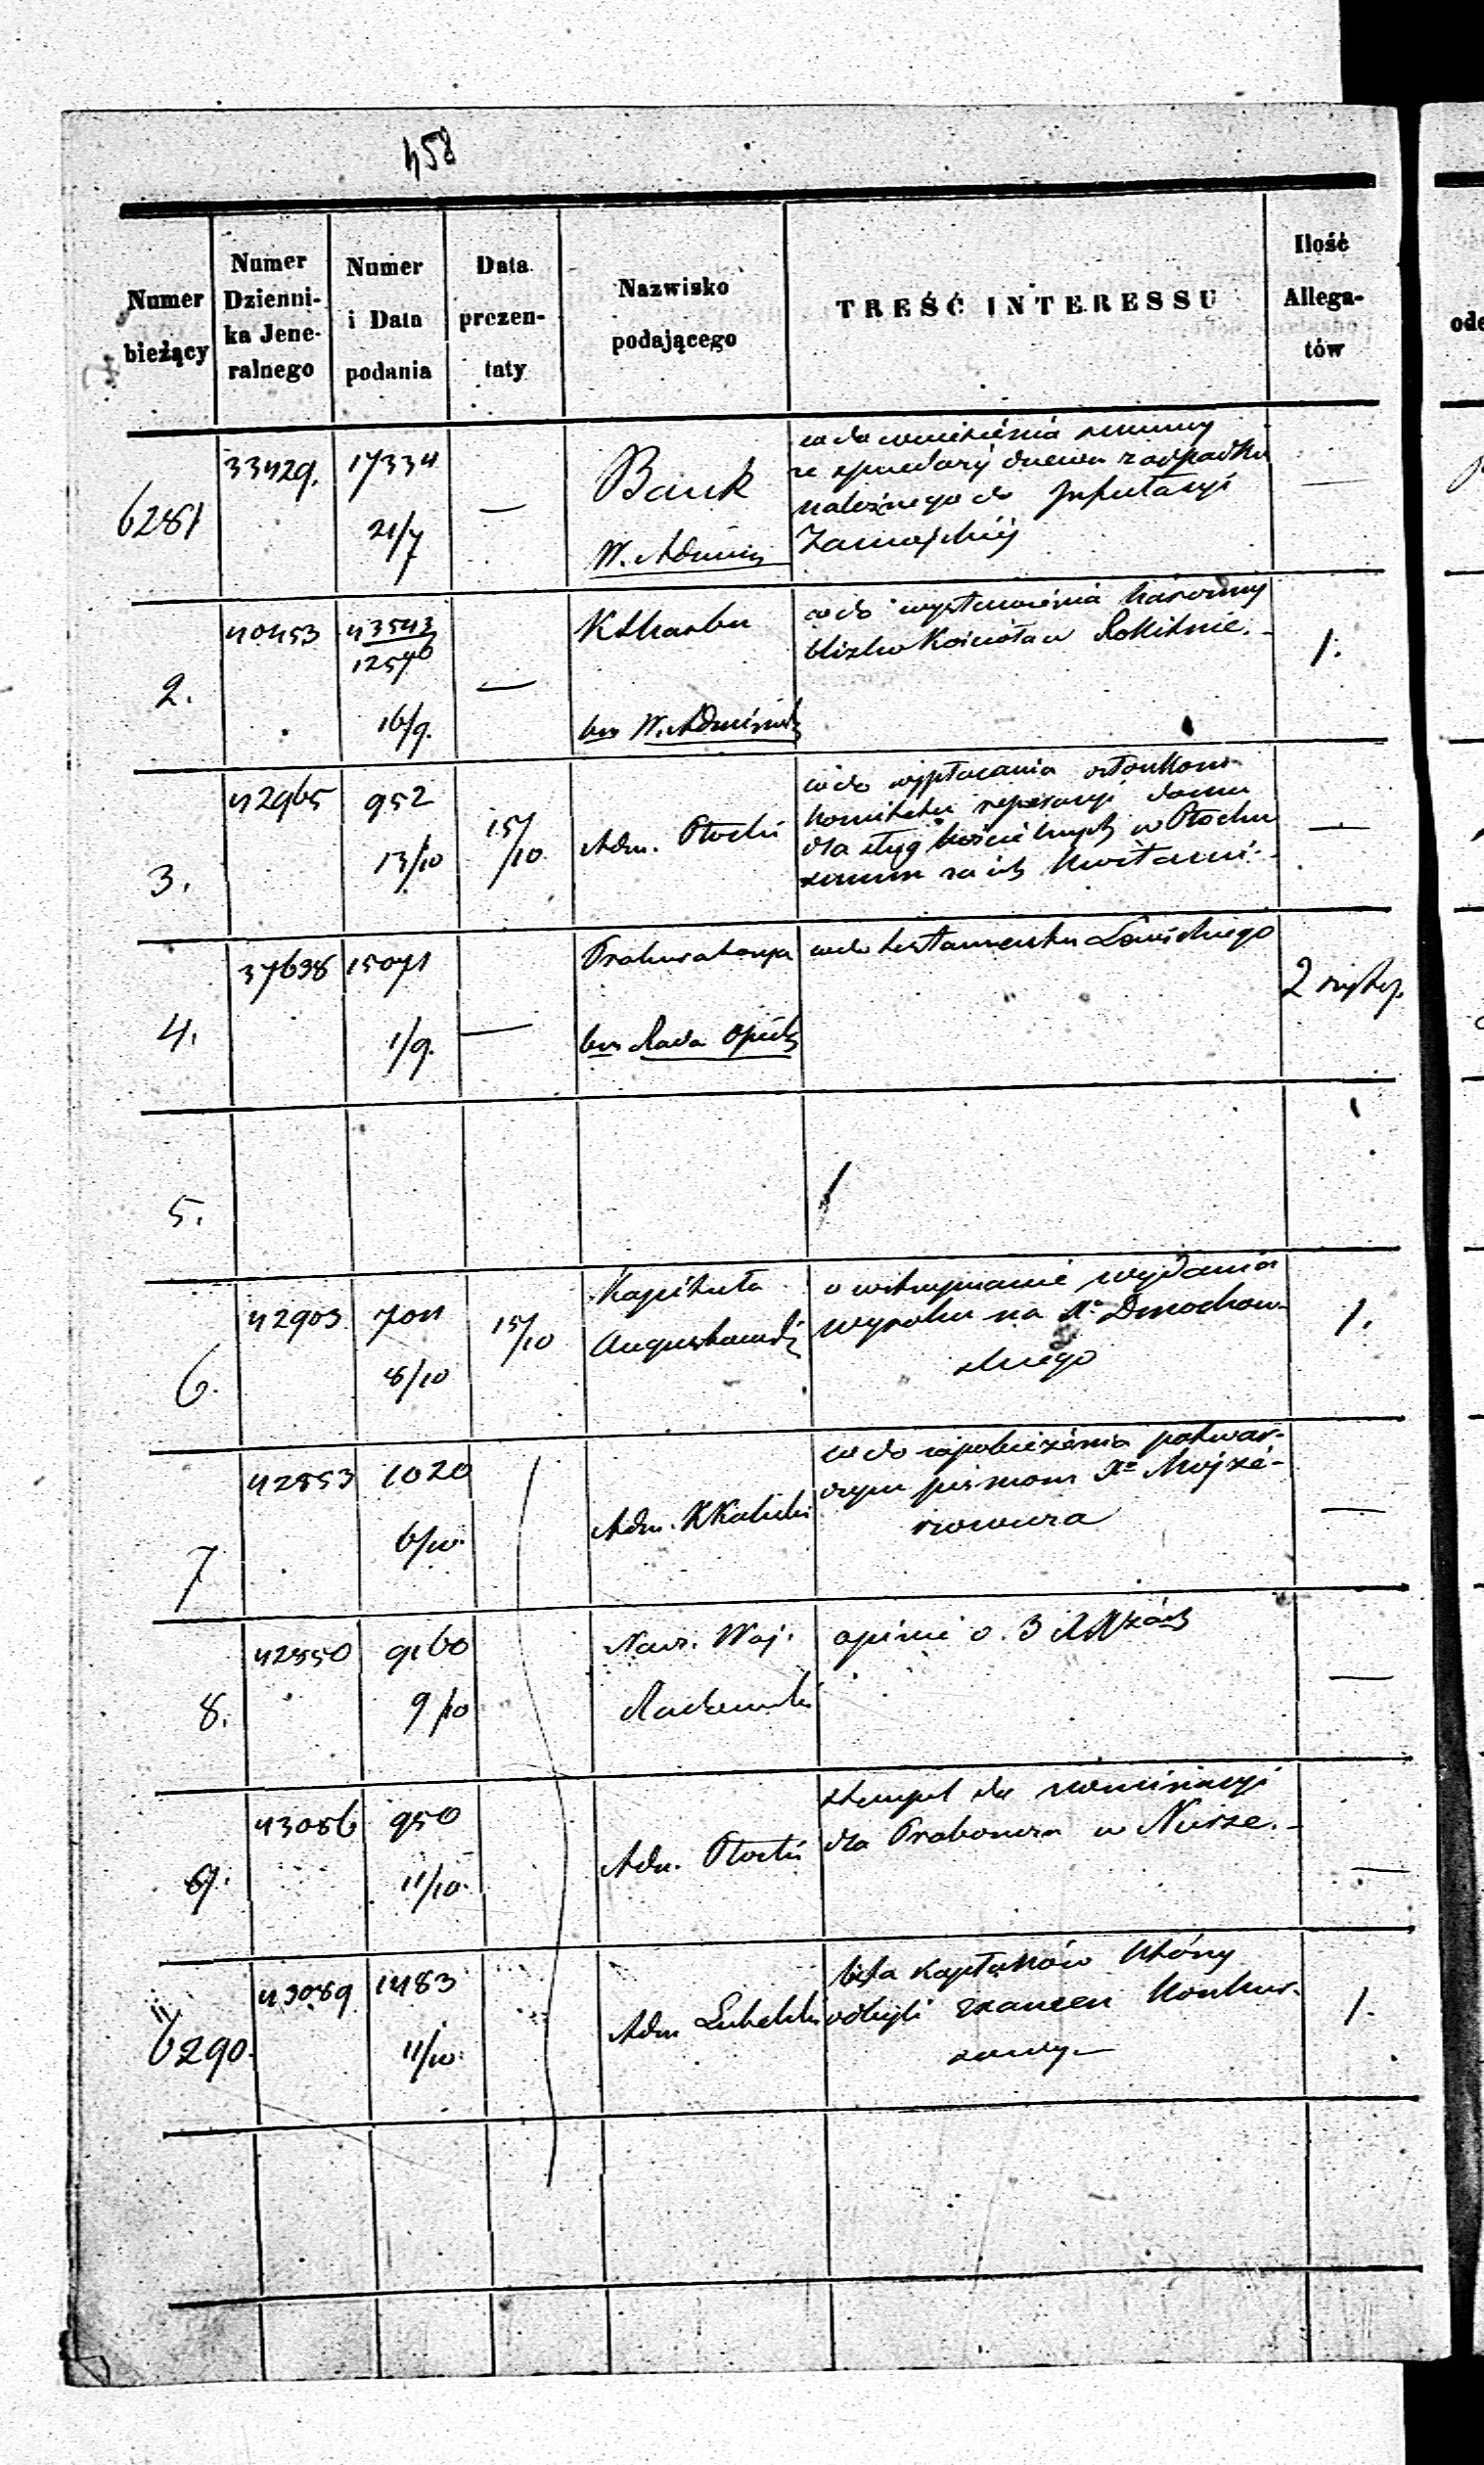 458
Numer bieżący
Numer Dzienni-
ka Jene-
ralnego
Numer
i Data
podania
Data
prezen-
taty
Nazwisko
podającego
TREŚĆ INTERESSU
Ilość
Allega-
tów
6281
33429.
17334
21/7
—
Bank
W. Admin
co do
summy
ze sprzedaży drzewa z odpadku
należnego do
Zamojskiéj
—
2.
40453
43543
12570
16/9.
—
KSkarbu
W. Administ
co do wystawienia karczmy
blizko Kościoła w Rokitnie.-
1.
3.
42965
952
13/10
15/10
Adm. Płocki
co do wypłacania członkom
komitetu reperacyi domu
dla sług kościelnych w Płocku
summ za ich kwitami.-
—
4.
37698
15071
1/9.
—
Prokuratorya
Rada Opiek
co do testamentu
2
5.
6.
42903
701
8/10
15/10
Kapituła
Augustowsk
o wstrzymanie wydania
wyroku na Xa Dmochow-
skiego
1.
7
42853
1020
6/10.
Adm. KKaliski
co do zapobieżenia potwar-
czym pismom Xa
—
8.
42850
9160
9/10
Nacz. Woj.
Radomski
opinie o 3
—
9.
43086
950
11/10.
Adm. Płocki
stempel do
dla Proboszcza w Nurze.-
—
6290.
43089
1483
11/10.
Adm Lubelski
lista kapłanów którzy
odbyli examen konkur-
sowy.—
1.